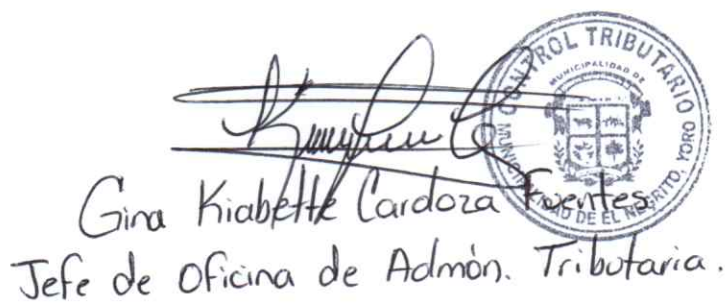 CONTROL TRIBUTARIO
MUNICIPALIDAD DE
MUNICIPALIDAD DE EL NEGRITO, YORO
Gina Kiabette Cardoza Fuentes.
Jefe de Oficina de Admón. Tributaria.